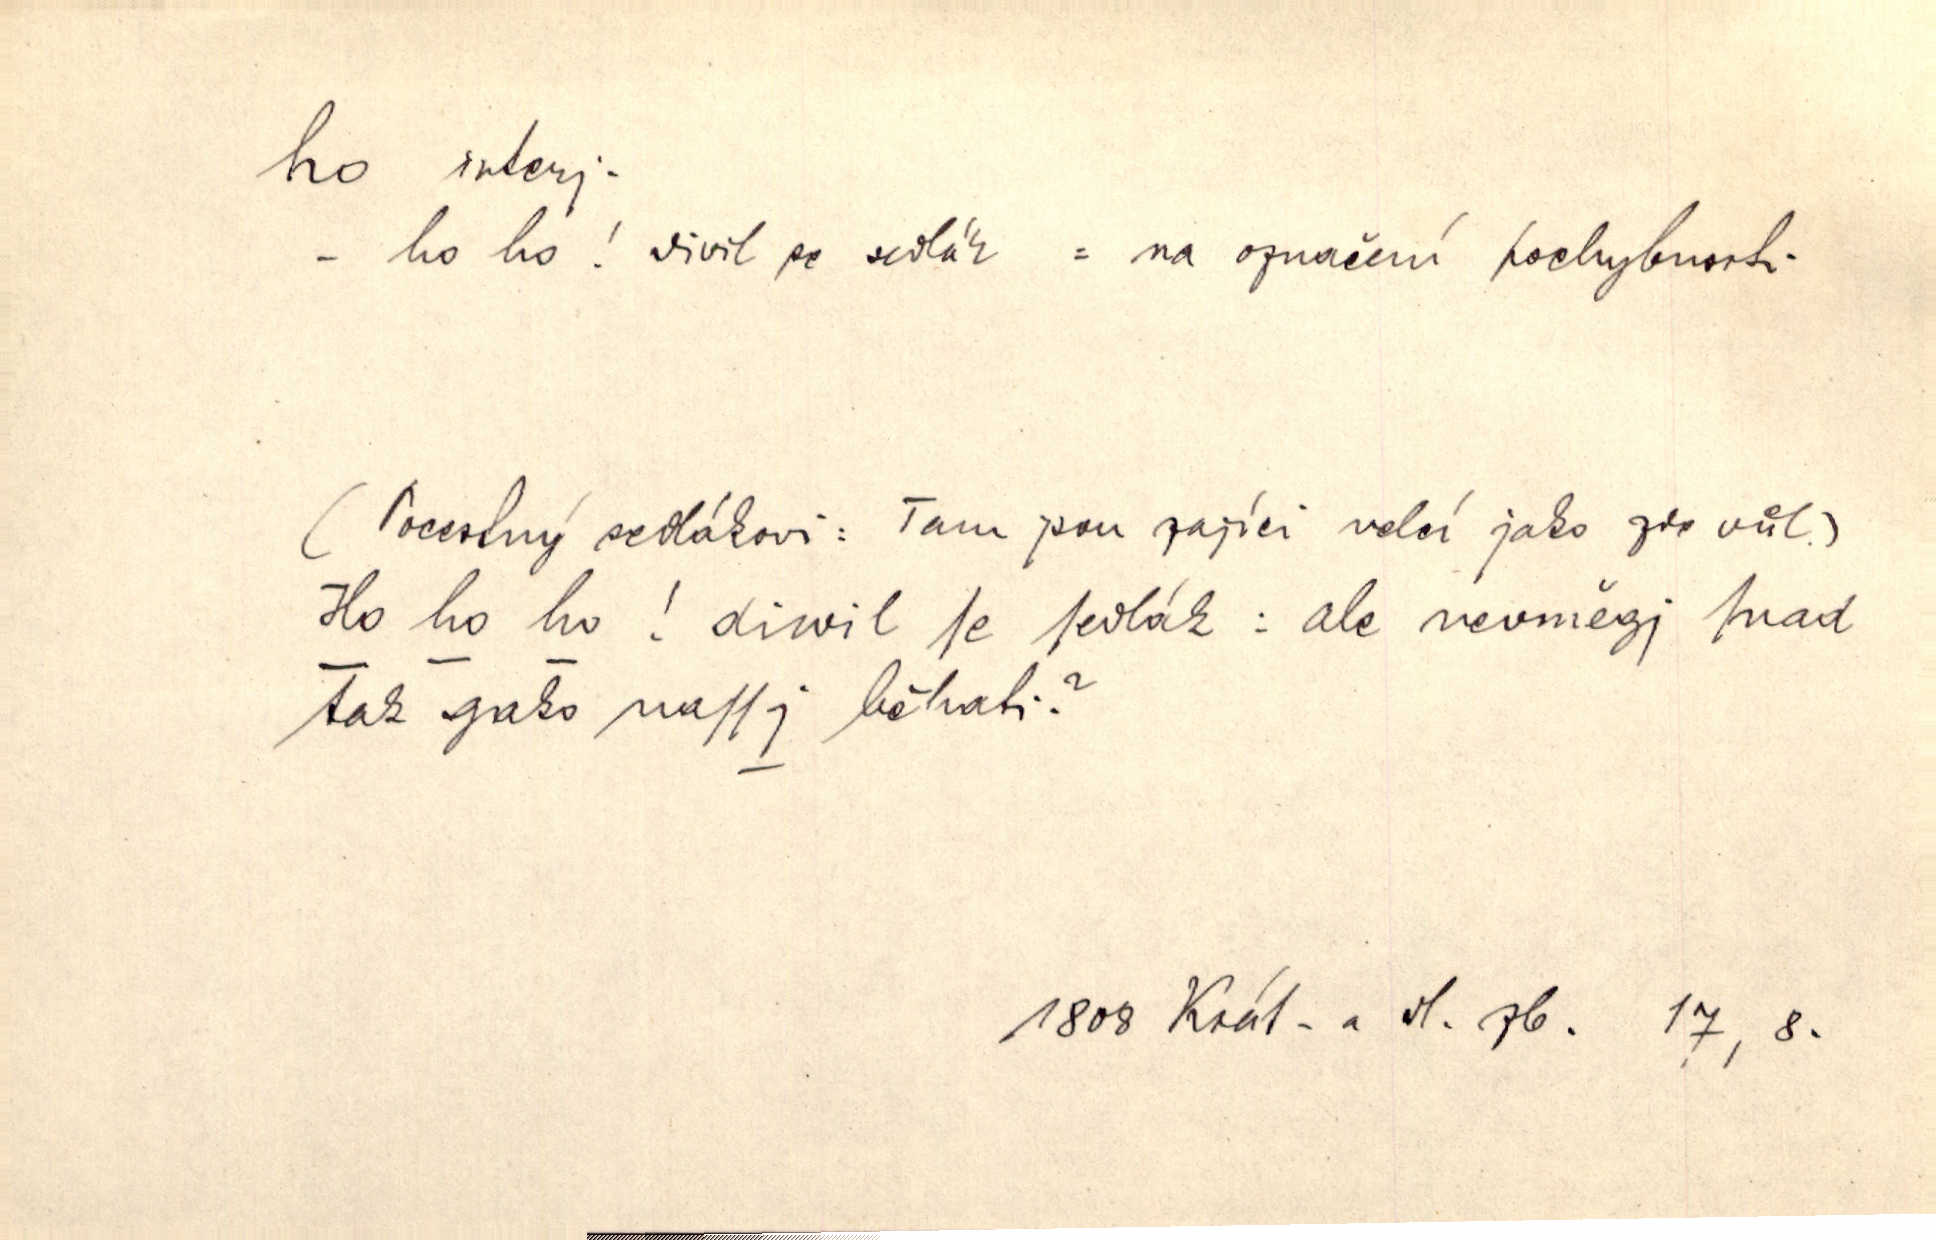 ho interj.
- ho ho! divil se sedlák = na označení pochybnosti.
(Pocestný sedlákovi: Tam jsou zajíci velcí jako zde vůl.)
Ho ho ho! diwil ſe ſedlák: ale nevměgj ſnad
tak gako naſſj běhati?
1808 Krát. a vl. zb. 17, 8.